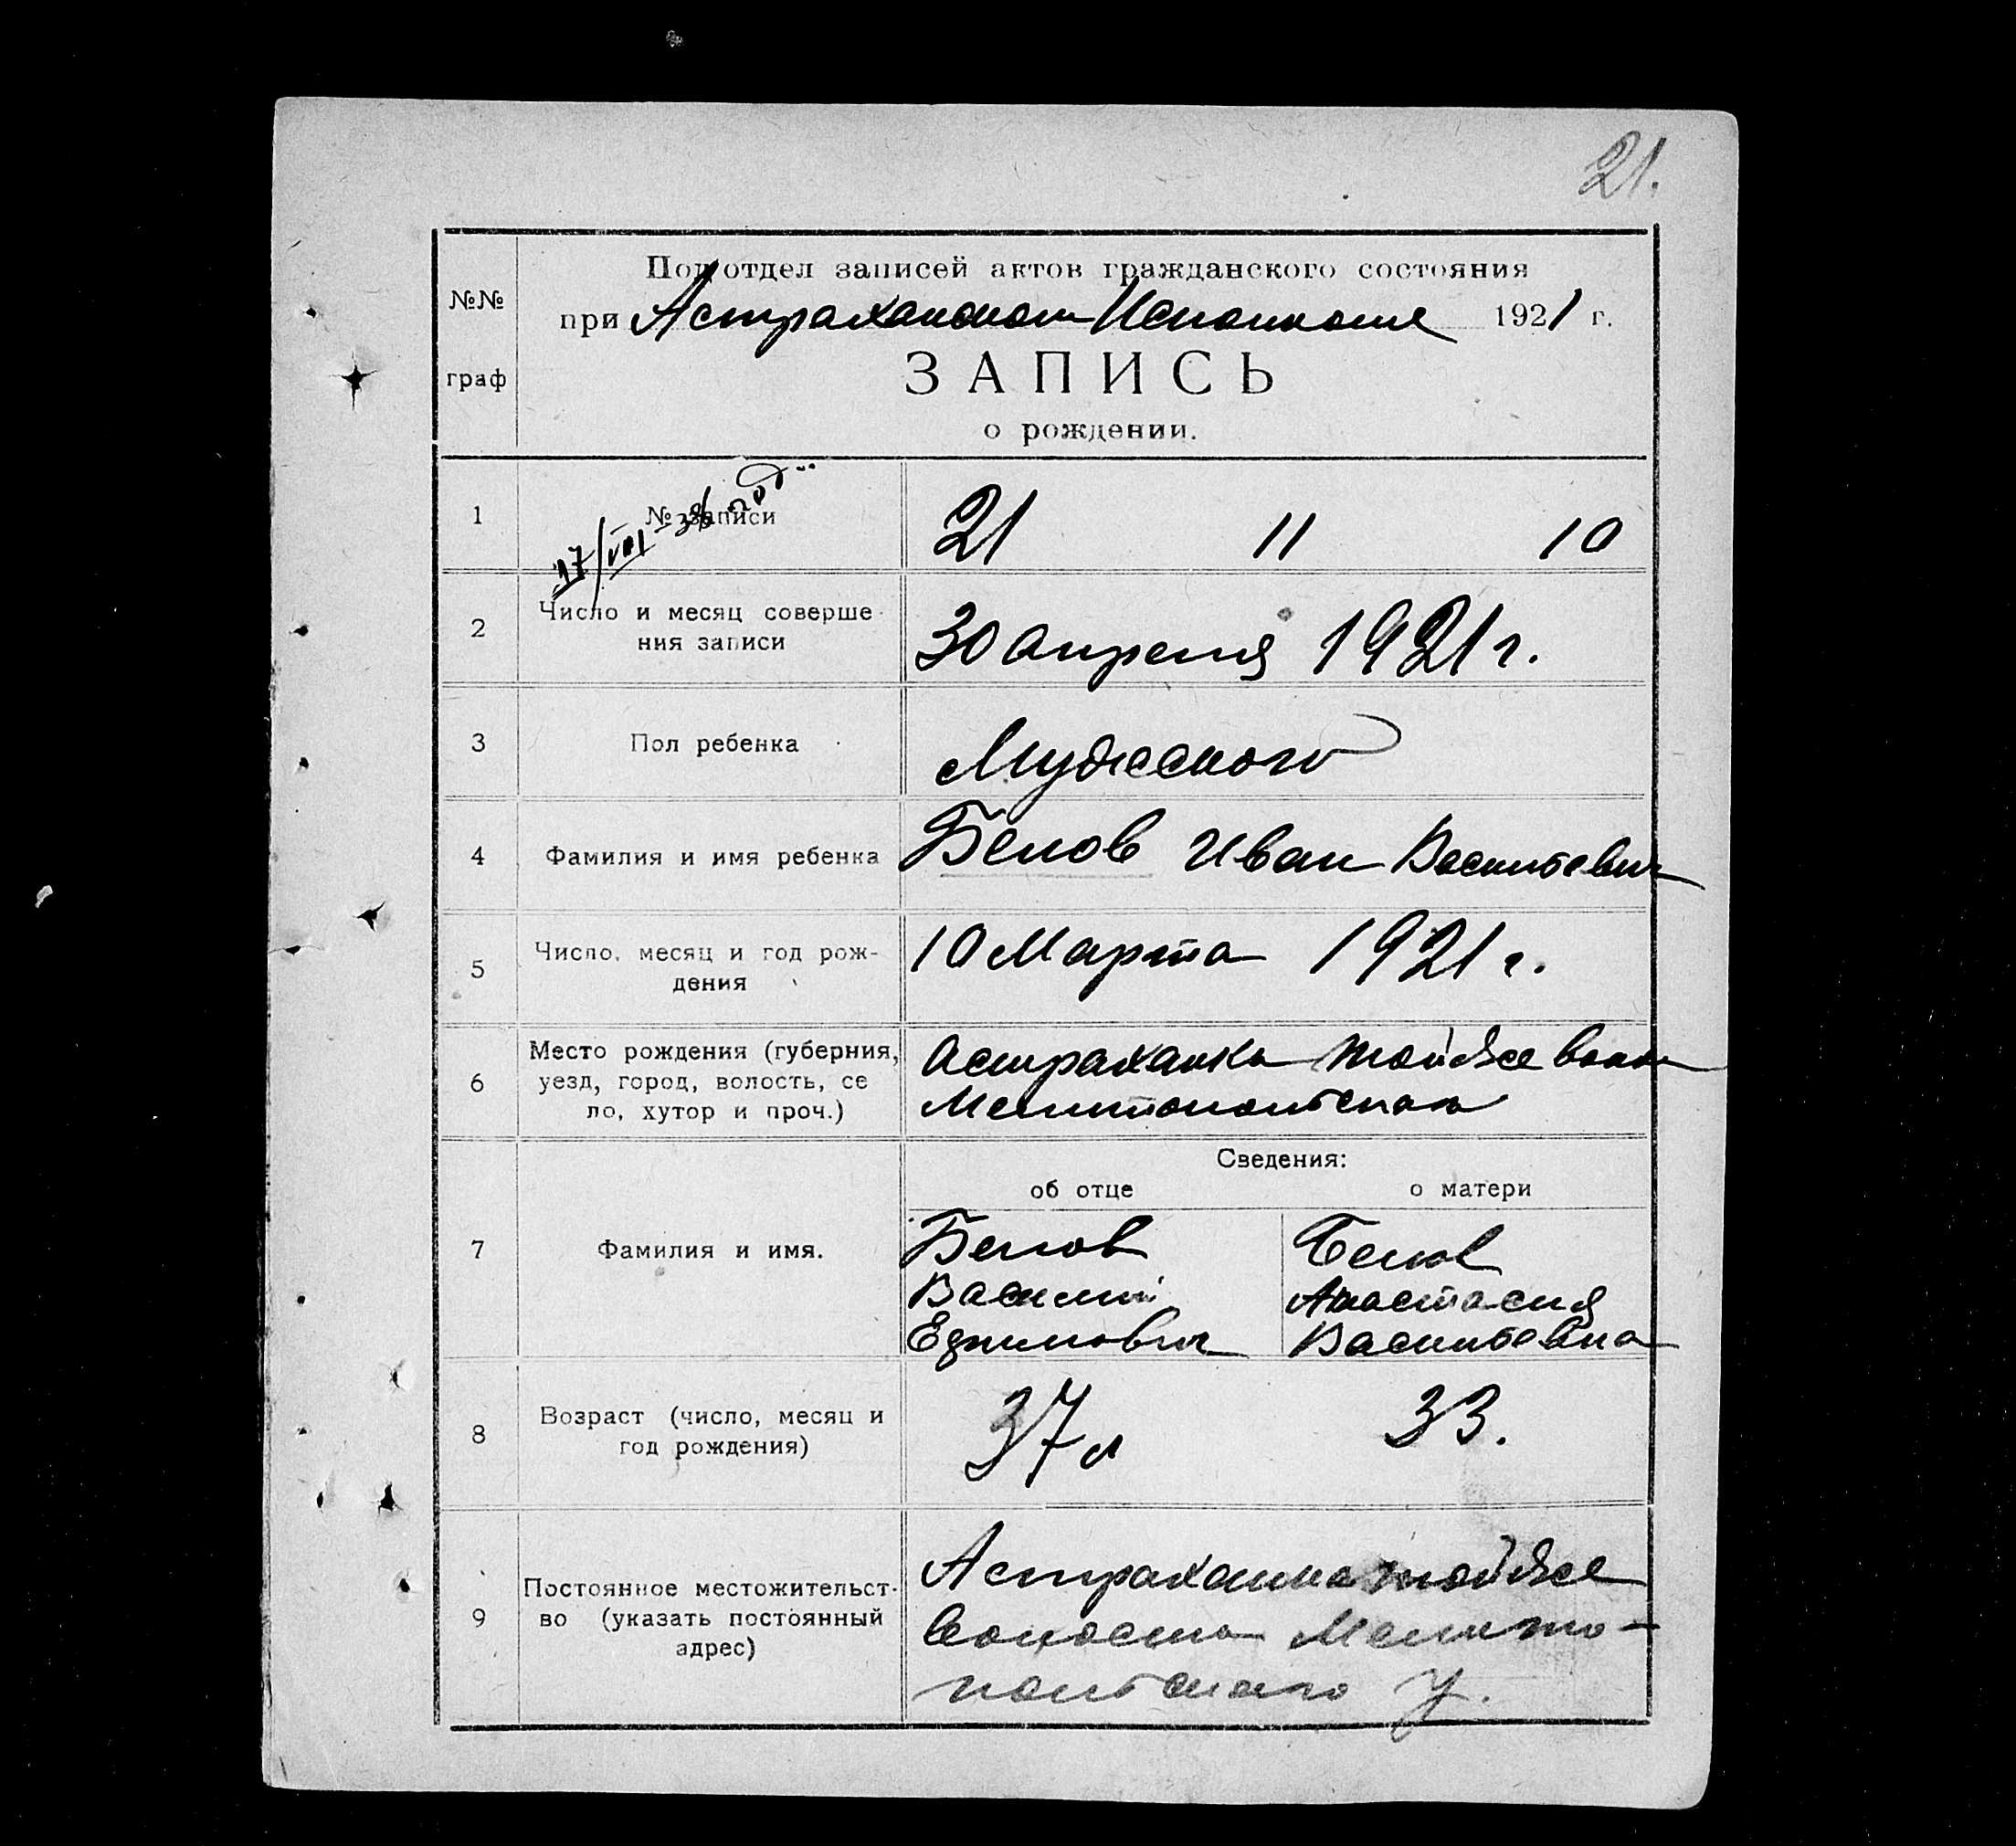 21.
№№
граф
Подотдел записей актов гражданского состояния
при Астраханском Исполкоме 1921 г.
ЗАПИСЬ
о рождении.
1
№ записи
17/VIII-38
21 11 10
2
Число и месяц соверше
ния записи
30 апреля 1921 г.
3
Пол ребенка
Мужеского
4
Фамилия и имя ребенка
Белов Иван Васильевич
5
Число, месяц и год рож-
дения
10 Марта 1921 г.
6
Место рождения (губерния,
уезд, город, волость, се
ло, хутор и проч.)
Астраханка той же волос
Мелитопольского
7
Фамилия и имя.
Сведения:
об отце
о матери
Белов
Василий
Ефимович
Белов
Анастасия
Васильевна
8
Возраст (число, месяц и
год рождения)
37 л
33.
9
Постоянное местожительст-
во (указать постоянный
адрес)
Астраханка той же
волости Мелито-
польского у.